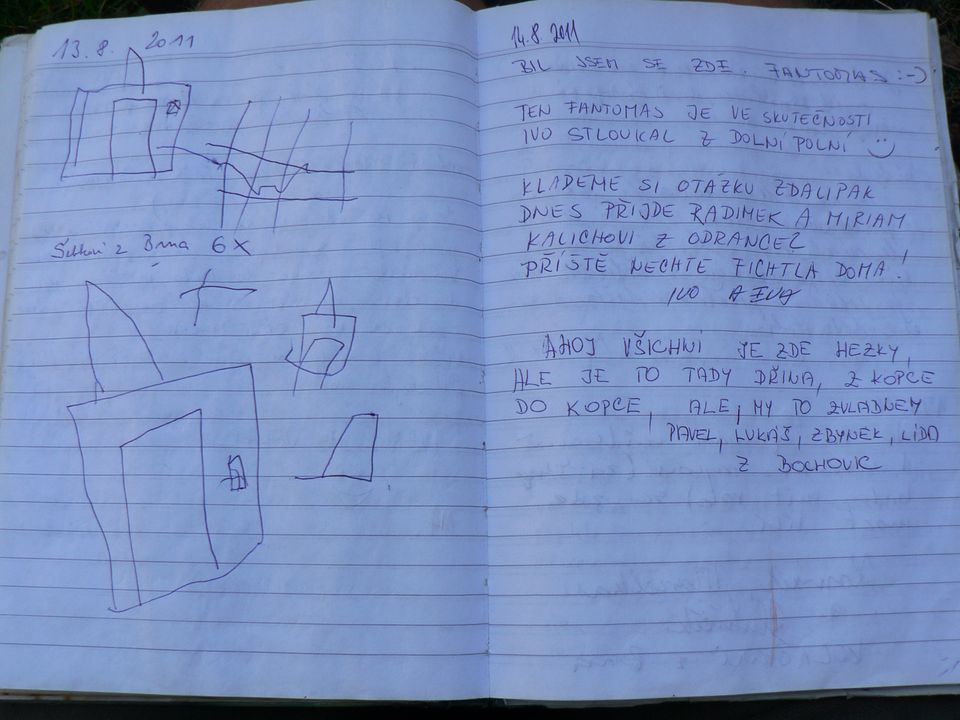 13. 8. 2011
z Brna 6x
14.8 2011
BIL JSEM SE ZDE. FANTOMAS :-)
TEN FANTOMAS JE VE SKUTEČNOSTI
IVO STLOUKAL Z DOLNÍ POLNÍ
KLADEME SI OTÁZKU ZDALIPAK
DNES PŘIJDE RADIMEK A MIRIAM
KALICHOVI Z ODRANCEZ
PŘÍŠTĚ NECHTE FICHTLA DOMA!
IVO A EVA
AHOJ VŠICHNI JE ZDE HEZKY,
ALE JE TO TADY DŘINA, Z KOPCE
DO KOPCE, ALE, MY TO ZVLADNEM
PAVEL, LUKÁŠ, ZBYNEK, LÍDA
Z BOCHOVIC